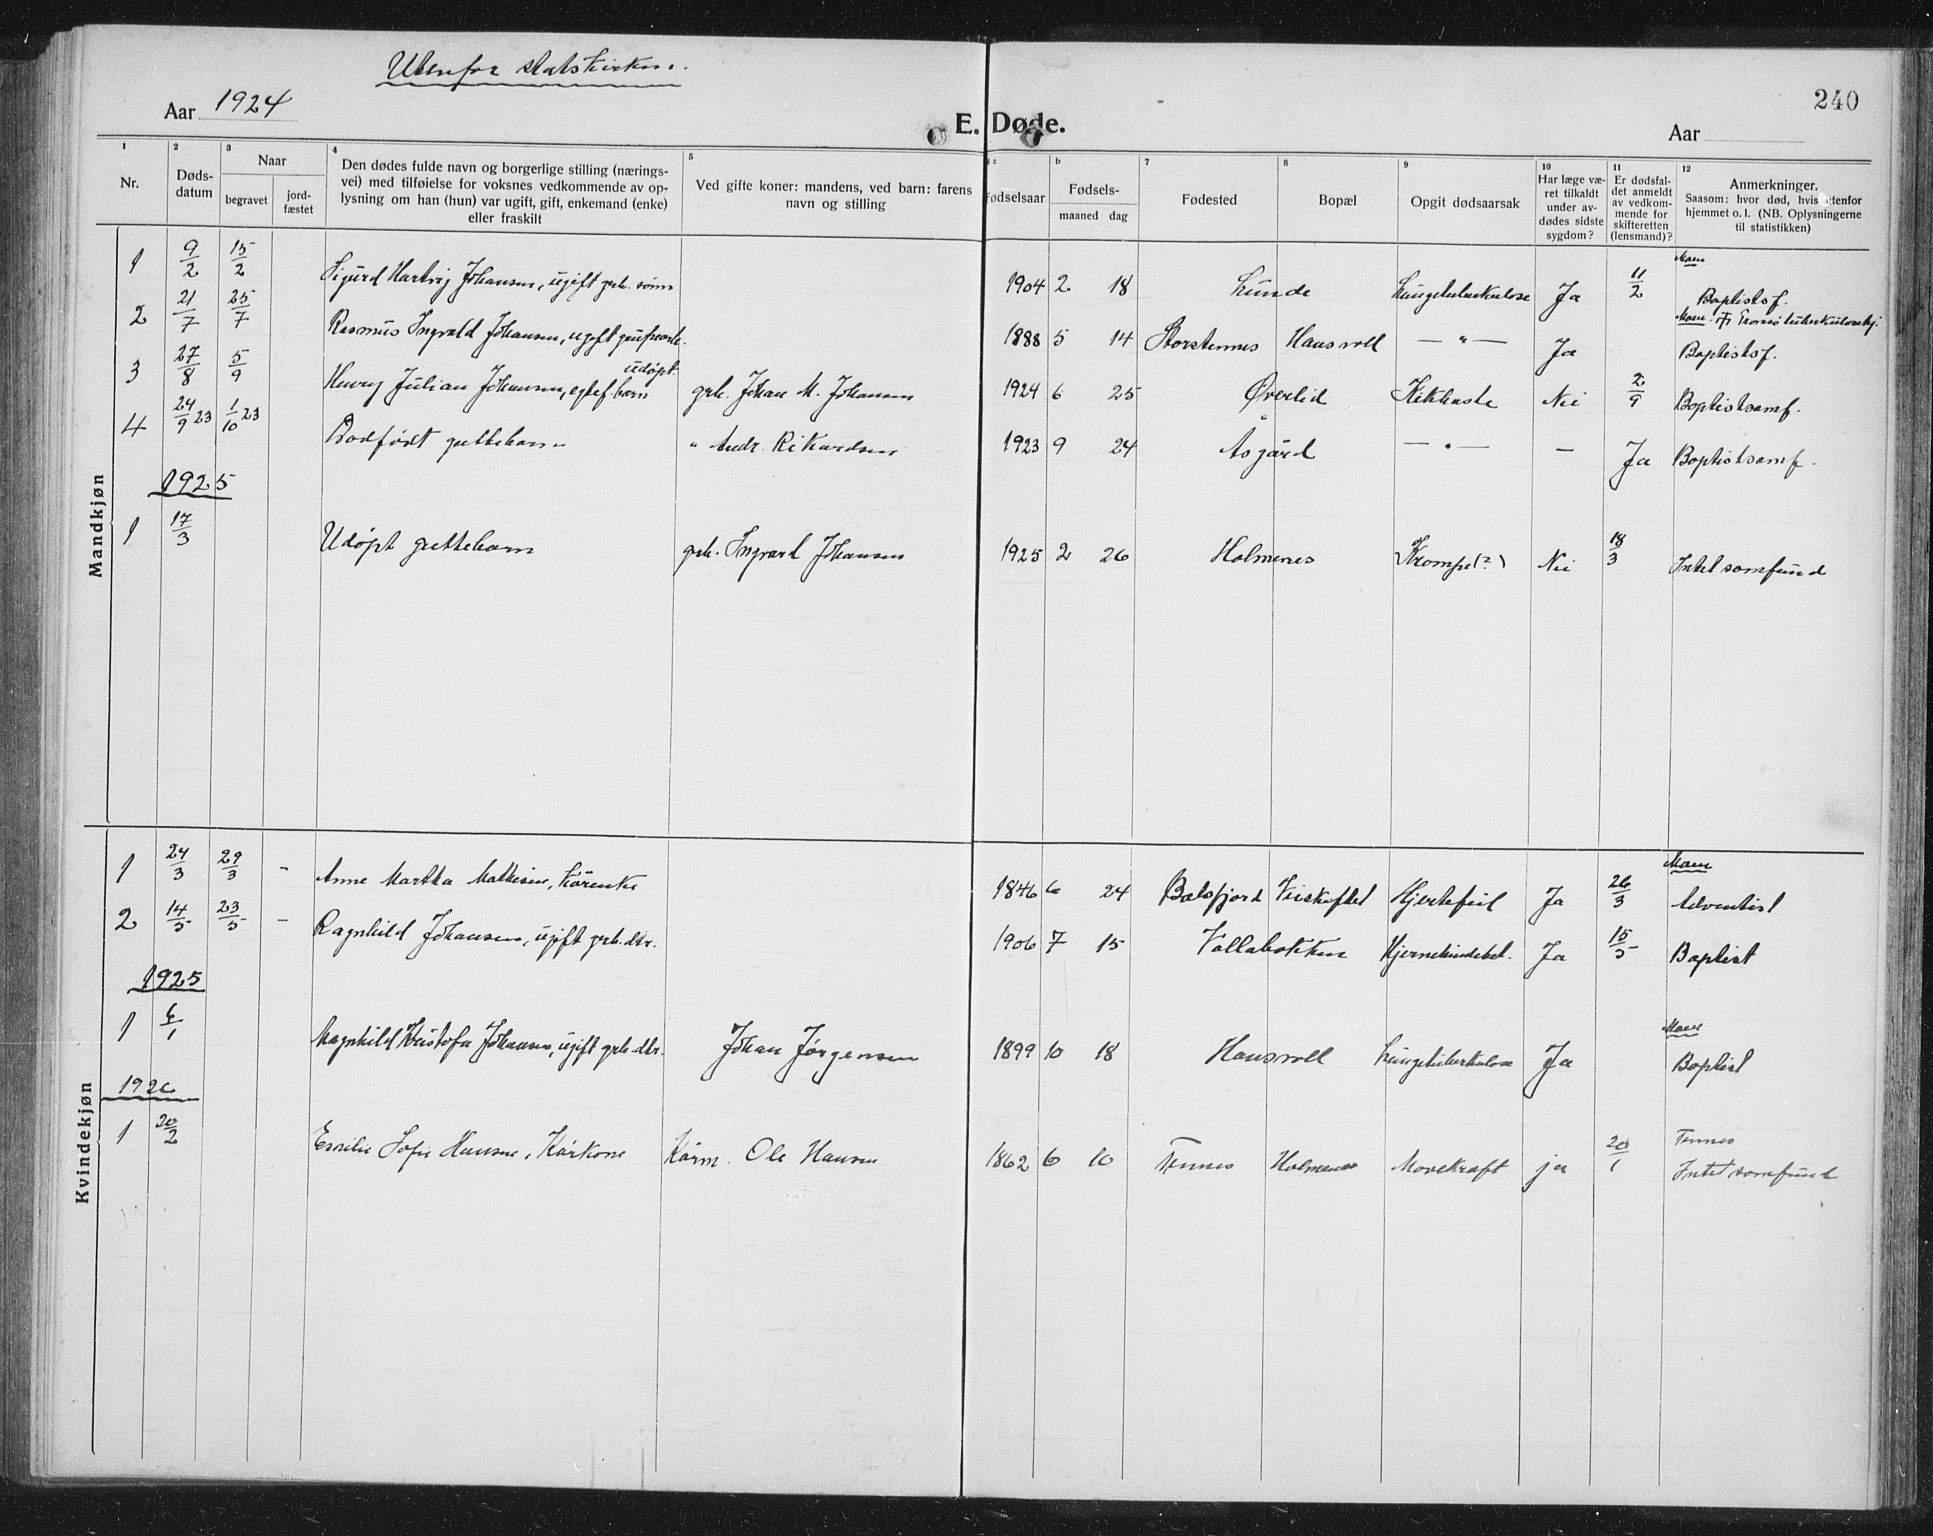 Utenfor statskirken.
240
Aar 1924
E. Døde.
Aar
1 Nr.
2 Døds-datum
3 Naar begravet jord-fæstet
4 Den dødes fulde navn og borgerlige stilling (nærings-vei) med tilføielse for voksnes vedkommende av op-lysning om han (hun) var ugift, gift, enkemand (enke) eller fraskilt
5 Ved gifte koner: mandens, ved barn: farens navn og stilling
6 a Fødselsaar
b Fødsels- maaned dag
7 Fødested
8 Bopæl
9 Opgit dødsaarsak
10 Har læge væ-ret tilkaldt under av-dødes sidste sygdom?
11 Er dødsfal-det anmeldt av vedkom-mende for skifteretten (lensmand)?
12 Anmerkninger. Saasom: hvor død, hvis utenfor hjemmet o. l. (NB. Oplysningerne til statistikken)
Mandkjøn
1 9/2 15/2 Sigurd Hartvig Johansen, ugift grb. sønn 1904 2 18 Lunde Lungetuberkulose Ja 11/2 Baptistsf.
2 21/7 25/7 Rasmus Ingvald Johansen, ugift 1888 5 14 Storstennes Hansvoll — " — Ja Tromsø Baptistsf.
3 27/8 5/9 Henry Julian Johansen, egtef. barn udøpt grb. Johan M. Johansen 1924 6 25 Øverlid Kikhoste Nei 2/9 Baptistsamf.
4 24/9 23 1/10 23 Dødfødt guttebarn " Andr. Rikardsen 1923 9 24 Åsgård — " — — Ja Baptistsamf.
1925
1 17/3 Udøpt guttebarn grb. Ingvart Johansen 1925 2 26 Holmenes Krampe(?) Nei 18/3 Intet samfund
Kvindekjøn
1 24/3 29/3 - Anne Martha Mathisen, kårenke 1846 6 24 Balsfjord Veiskaftet Hjertefeil Ja 26/3 Adventist
2 14/5 23/5 - Ragnhild Johansen, ugift grb. dtr. 1906 7 15 Vollabakken Hjernehindebet. Ja 15/5 Baptist
1925
1 6/1 Magnhild Kristofa Johansen, ugift grb. dtr. Johan Jørgensen 1899 10 18 Hansvoll Lungetuberkulose Ja Baptist
1926
1 20/2 Emilie Sofie Hansen, Kårkone Kårm. Ole Hansen 1862 6 10 Tennes Holmenes Mavekræft ja 20/1 Tennes
Intet samfund